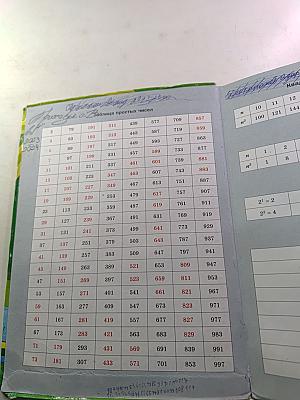 Таблица простых чисел
2 79 191 311 439 577 709 857
3 83 193 313 443 587 719 859
5 89 197 317 449 593 727 863
7 97 199 331 457 599 733 877
11 101 211 337 461 601 739 881
13 103 223 347 463 607 743 883
17 107 227 349 467 613 751 887
19 109 229 353 479 617 757 907
23 113 233 359 487 619 761 911
29 127 239 367 491 631 769 919
31 131 241 373 499 641 773 929
37 137 251 379 503 643 787 937
41 139 257 383 509 647 797 941
43 149 263 389 521 653 809 947
47 151 269 397 523 659 811 953
53 157 271 401 541 661 821 967
59 163 277 409 547 673 823 971
61 167 281 419 557 677 827 977
67 173 283 421 563 683 829 983
71 179 293 431 569 691 839 991
73 181 307 433 571 701 853 997
n 10 11 12
n² 100 121 144
n 1 2
n² 1 4 8
2¹ = 2
2² = 4